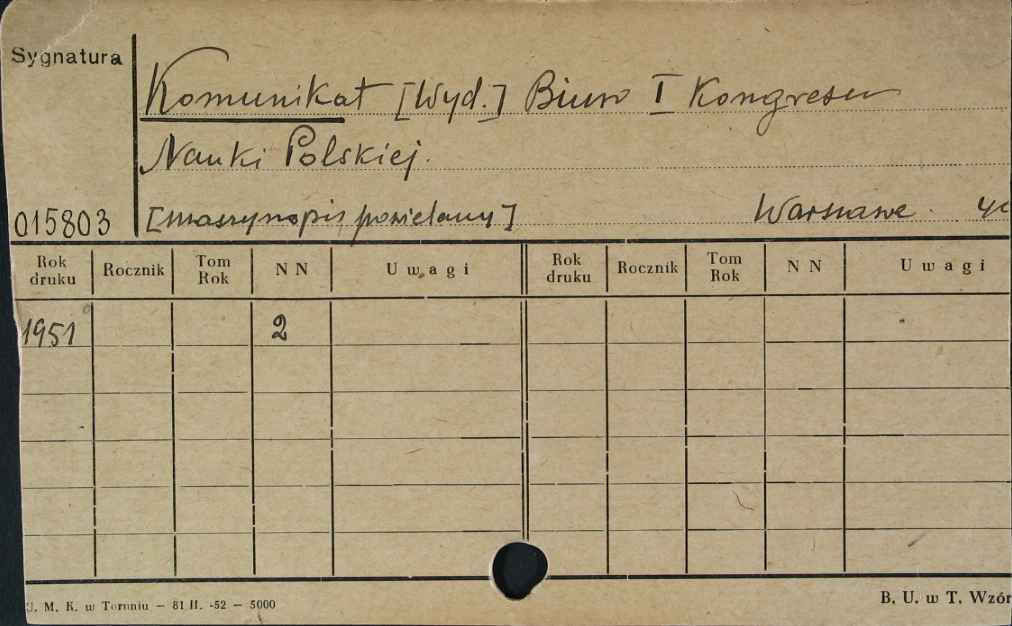 Sygnatura
Komunikat [Wyd.] Biuro I Kongresu
Nauki Polskiej.
015803 [maszynopis powielany] Warszawa.
Rok druku Rocznik Tom Rok N N Uwagi Rok druku Rocznik Tom Rok N N Uwagi
1951 2
U. M. K. w Toruniu — 81 II. -52 — 5000 B. U. w T. Wzór